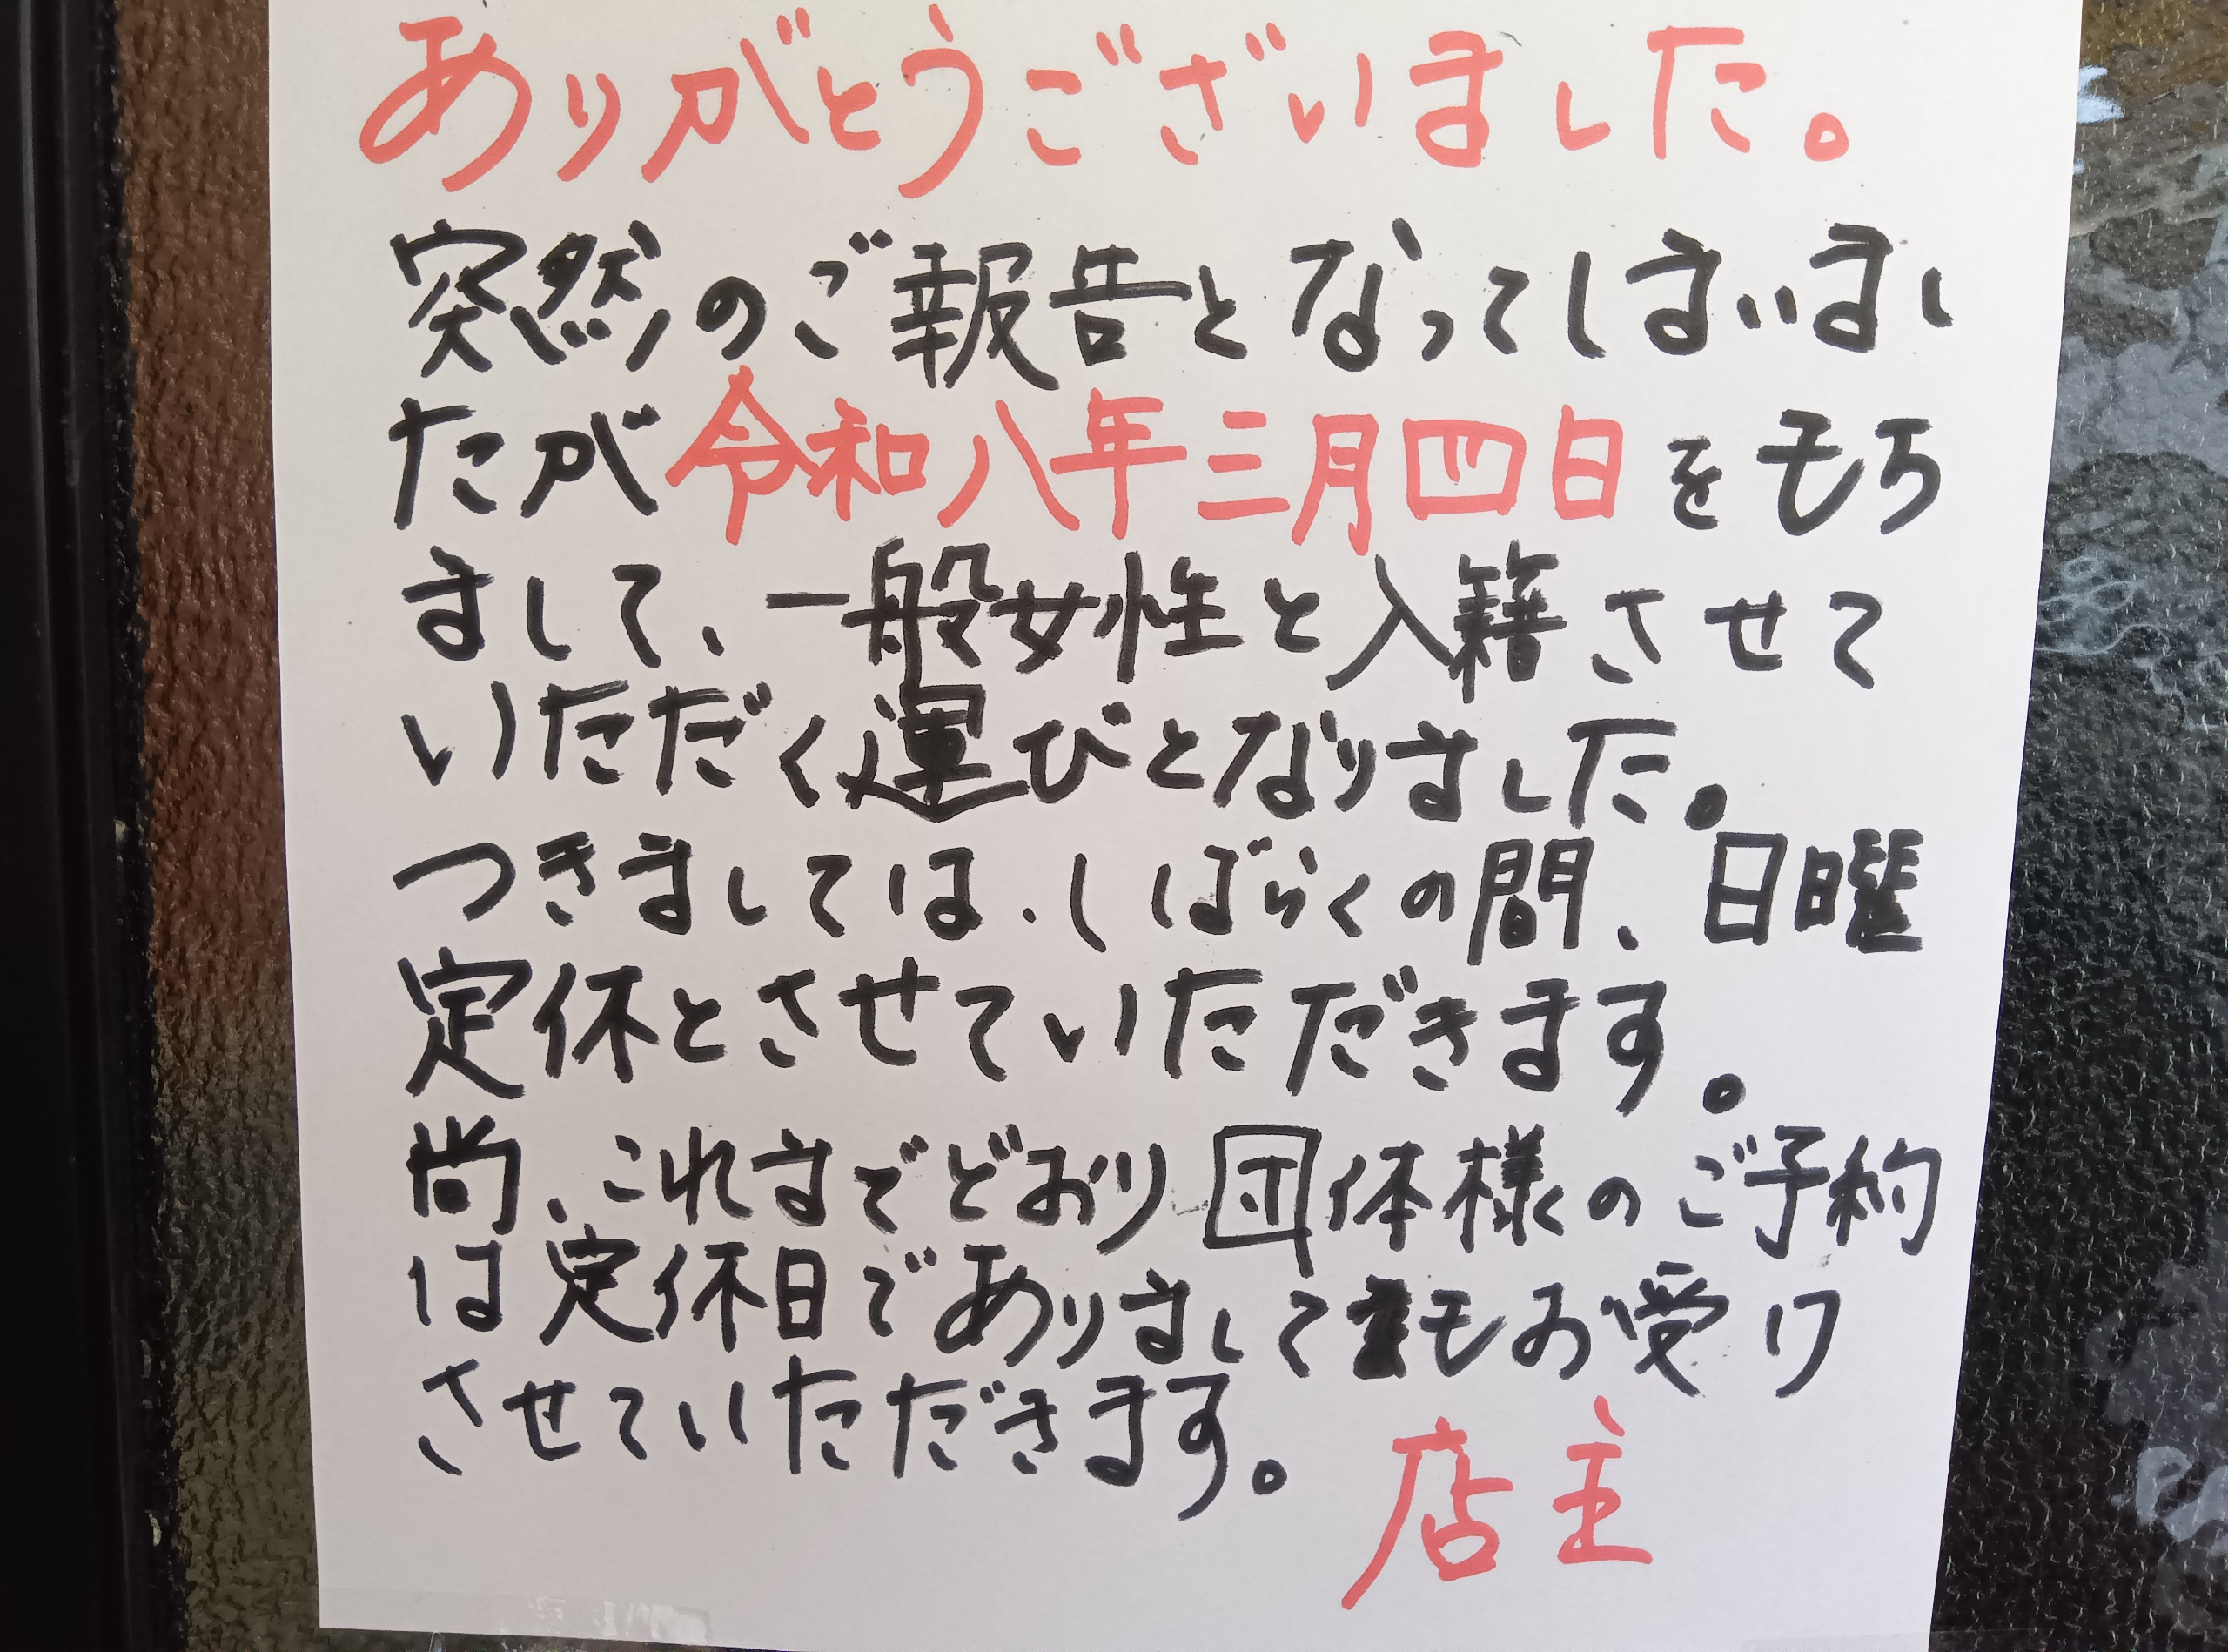 ありがとうございました。
突然のご報告となってしまいまし
たが令和八年三月四日をもち
まして、一般女性と入籍させて
いただく運びとなりました。
つきましては、しばらくの間、日曜
定休とさせていただきます。
尚、これまでどおり団体様のご予約
は定休日でありましてもお受け
させていただきます。
店主